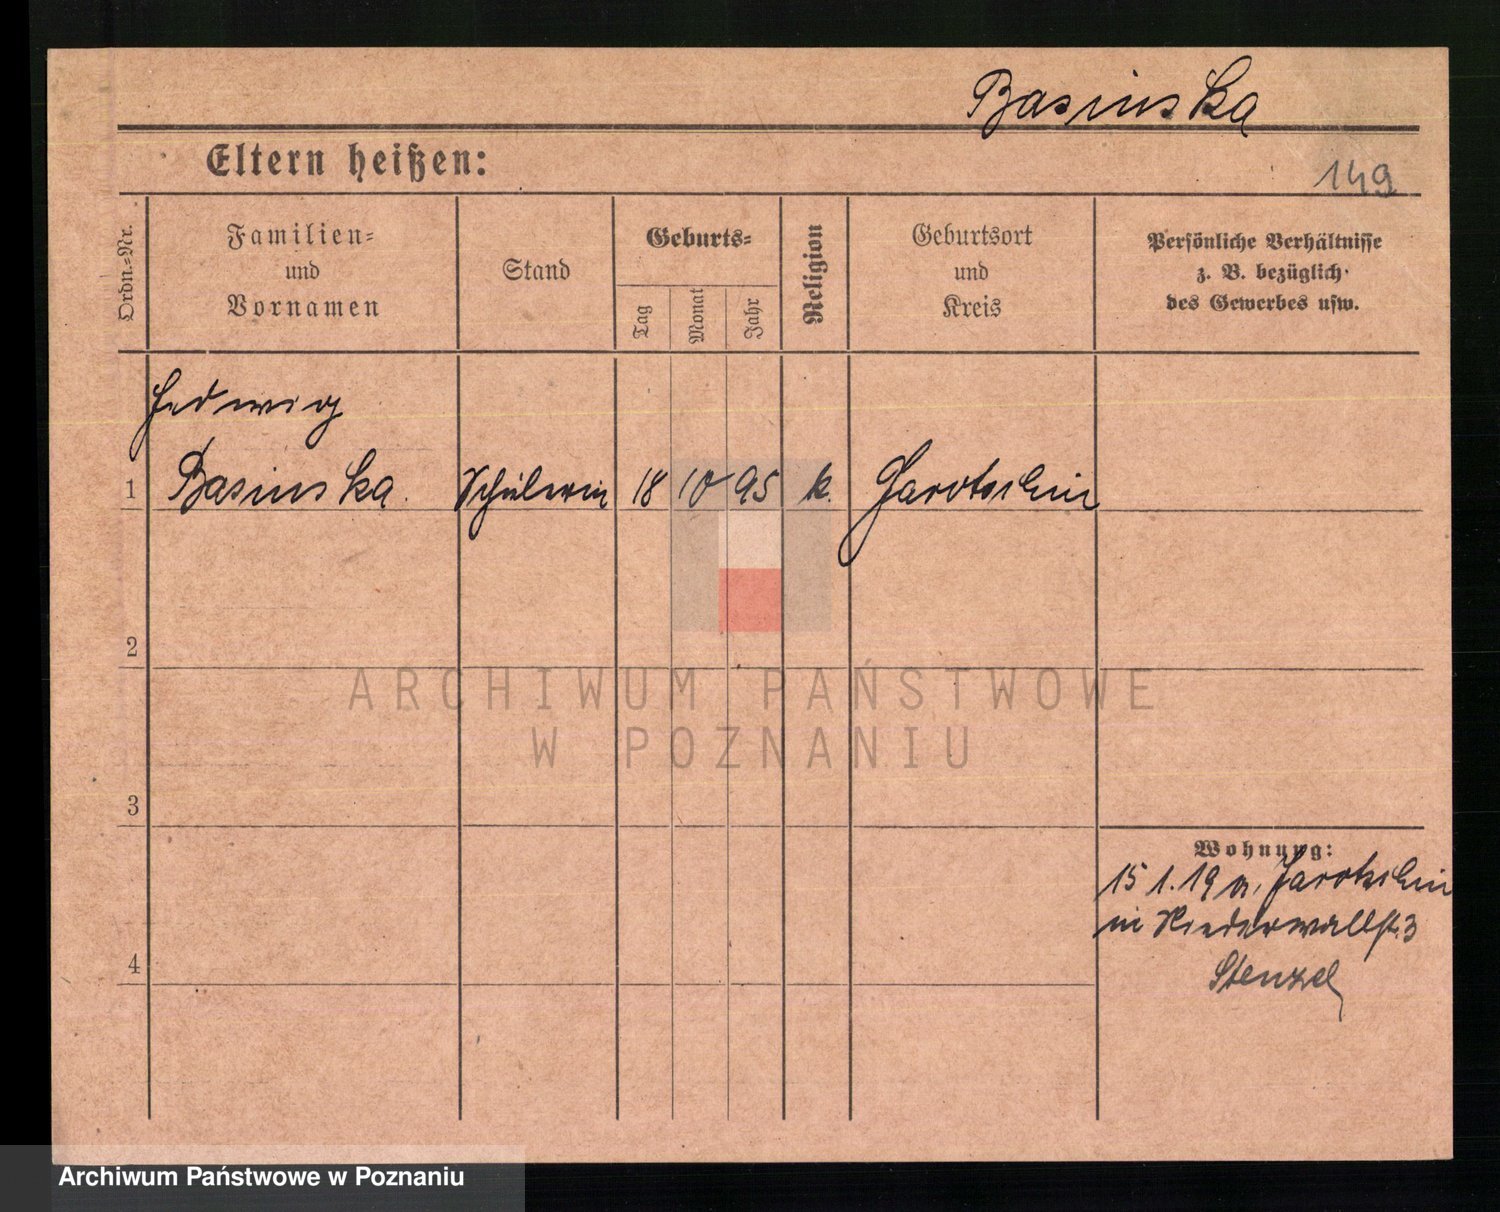 Basinska
Eltern heißen:
149
Ordn.-Nr.
Familien-
und
Vornamen
Stand
Geburts-
Tag
Monat
Jahr
Religion
Geburtsort
und
Kreis
Persönliche Verhältnisse
z. B. bezüglich
des Gewerbes usw.
Hedwig
1 Basinska. Schülerin 18 10 95 k. Jarotschin
2
ARCHIWUM PAŃSTWOWE
W POZNANIU
3
Wohnung:
15 1. 19 a. Jarotschin
in Niederwallst. 3
4
Stenzel
Archiwum Państwowe w Poznaniu